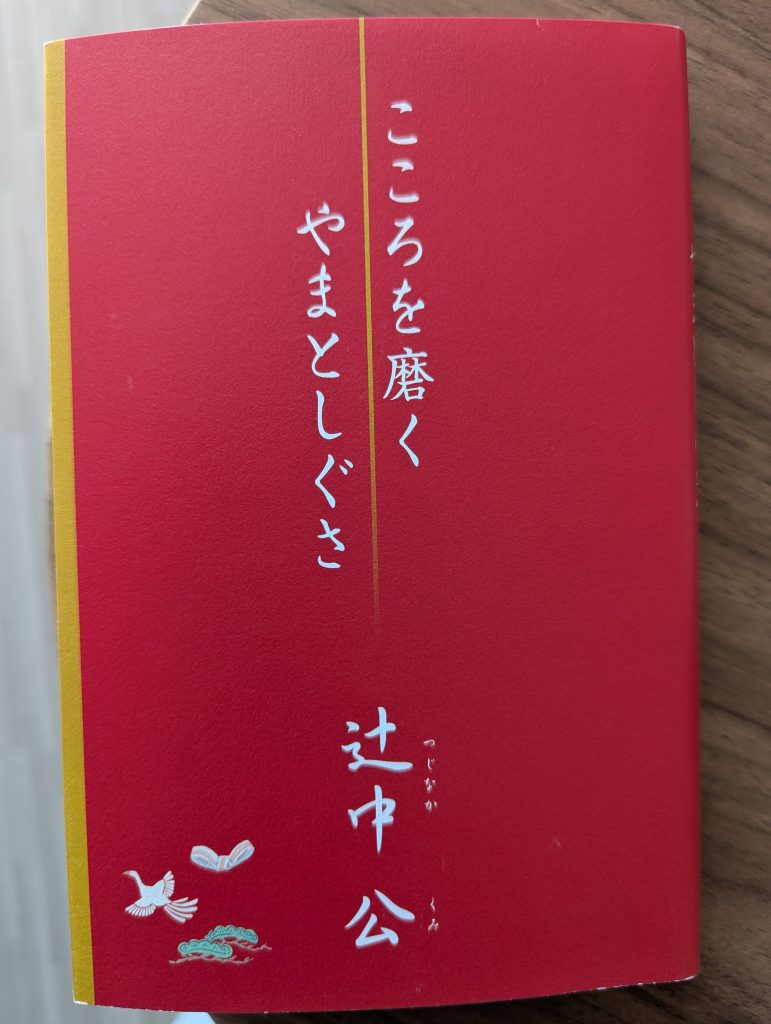 こころを磨く
やまとしぐさ
つじなか
くみ
辻中 公